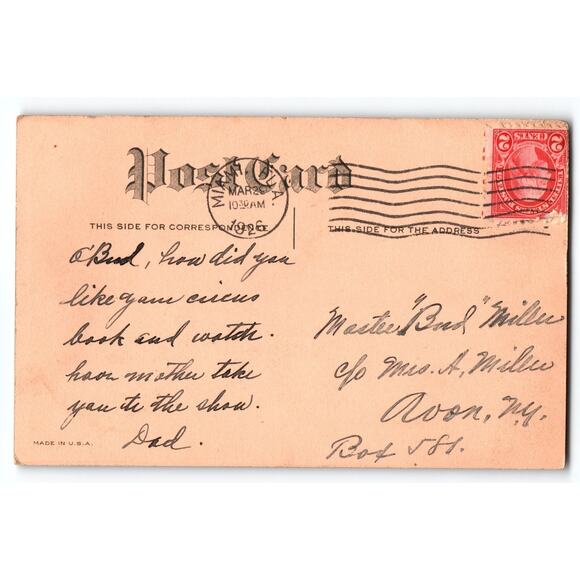 Post Card
MIAMI FLA.
MAR 26
10 30 AM
1926
2 CENTS 2
THIS SIDE FOR CORRESPONDENCE
THIS SIDE FOR THE ADDRESS
O'Bud, how did you
like your circus
book and watch.
have mother take
you to the show.
Dad.
Master "Bud" Miller
c/o Mrs. A, Miller
Avon, N.Y.
Box 581.
MADE IN U.S.A.